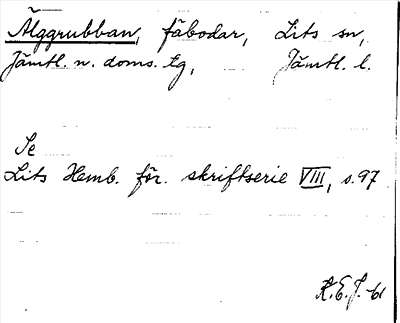 Älggrubban, fäbodar, Lits sn,
Jämtl. n. doms. tg, Jämtl. l.
Se
Lits Hemb. för. skriftserie VIII, s. 97
R. E. J. -61